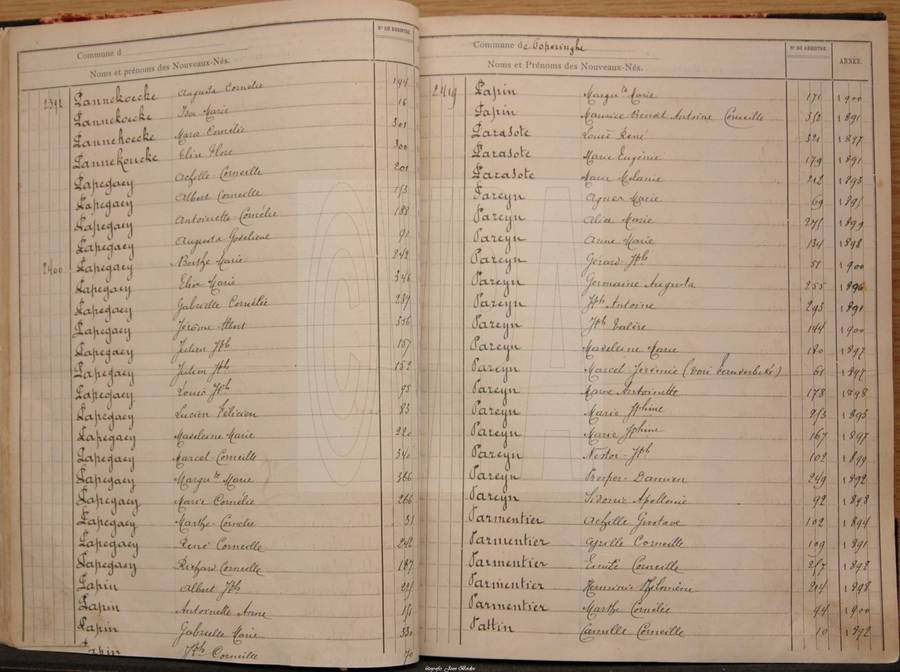 Commune d
N° DE REGISTRE.
Noms et prénoms des Nouveaux-Nés.
2392 Pannekoecke Augusta Cornélie 144
Pannekoecke Irma Marie 16
Pannekoecke Maria Cornélie 301
Pannekoucke Elia Flore 300
Papegaey Achille Corneille 201
Papegaey Albert Corneille 113
Papegaey Antoinette Cornélie 188
Papegaey Augusta Godelieve 91
2400 Papegaey Berthe Marie 242
Papegaey Elise Marie 346
Papegaey Gabrielle Cornélie 237
Papegaey Jérôme Albert 356
Papegaey Julien Jph 157
Papegaey Julien Jph 152
Papegaey Louis Jph 95
Papegaey Lucien Félicien 83
Papegaey Madeleine Marie 220
Papegaey Marcel Corneille 340
Papegaey Margute Marie 366
Papegaey Marie Cornélie 266
Papegaey Marthe Cornélie 31
Papegaey René Corneille 242
Papegaey Richard Corneille 187
Papin Albert Jph
Papin Antoinette Anne
Papin Gabrielle Marie 330
Papin Jph Corneille 70
Commune de Poperinghe
N° DE REGISTRE.
ANNÉE.
Noms et Prénoms des Nouveaux-Nés.
2419 Papin Margute Marie 171 1900
Papin Maurice Benoit Antoine Corneille 312 1891
Parasote Louis René 321 1897
Parasote Marie Eugénie 179 1891
Parasote Marie Mélanie 212 1893
Pareyn Agnès Marie 69 1895
Pareyn Alice Marie 1899
Pareyn Anne Marie 134 1898
Pareyn Gérard Jph 51 1900
Pareyn Germaine Augusta 255 1896
Pareyn Jph Antoine 293 1891
Pareyn Jph Valère 144 1900
Pareyn Madeleine Marie 180 1897
Pareyn Marcel Jérémie (voir Vanderbeke) 61 1897
Pareyn Marie Antoinette 178 1898
Pareyn Marie Jphine 213 1895
Pareyn Marie Jphine 167 1897
Pareyn Nestor Jph 102 1899
Pareyn Prosper Damien 249 1892
Pareyn Sidonie Apollonie 92 1898
Parmentier Achille Gustave 102 1894
Parmentier Cyrille Corneille 109 1891
Parmentier Emile Corneille 257 1892
Parmentier Herminie Philomène 214 1898
Parmentier Marthe Cornélie 44 1900
Pattin Camille Corneille 10 1892